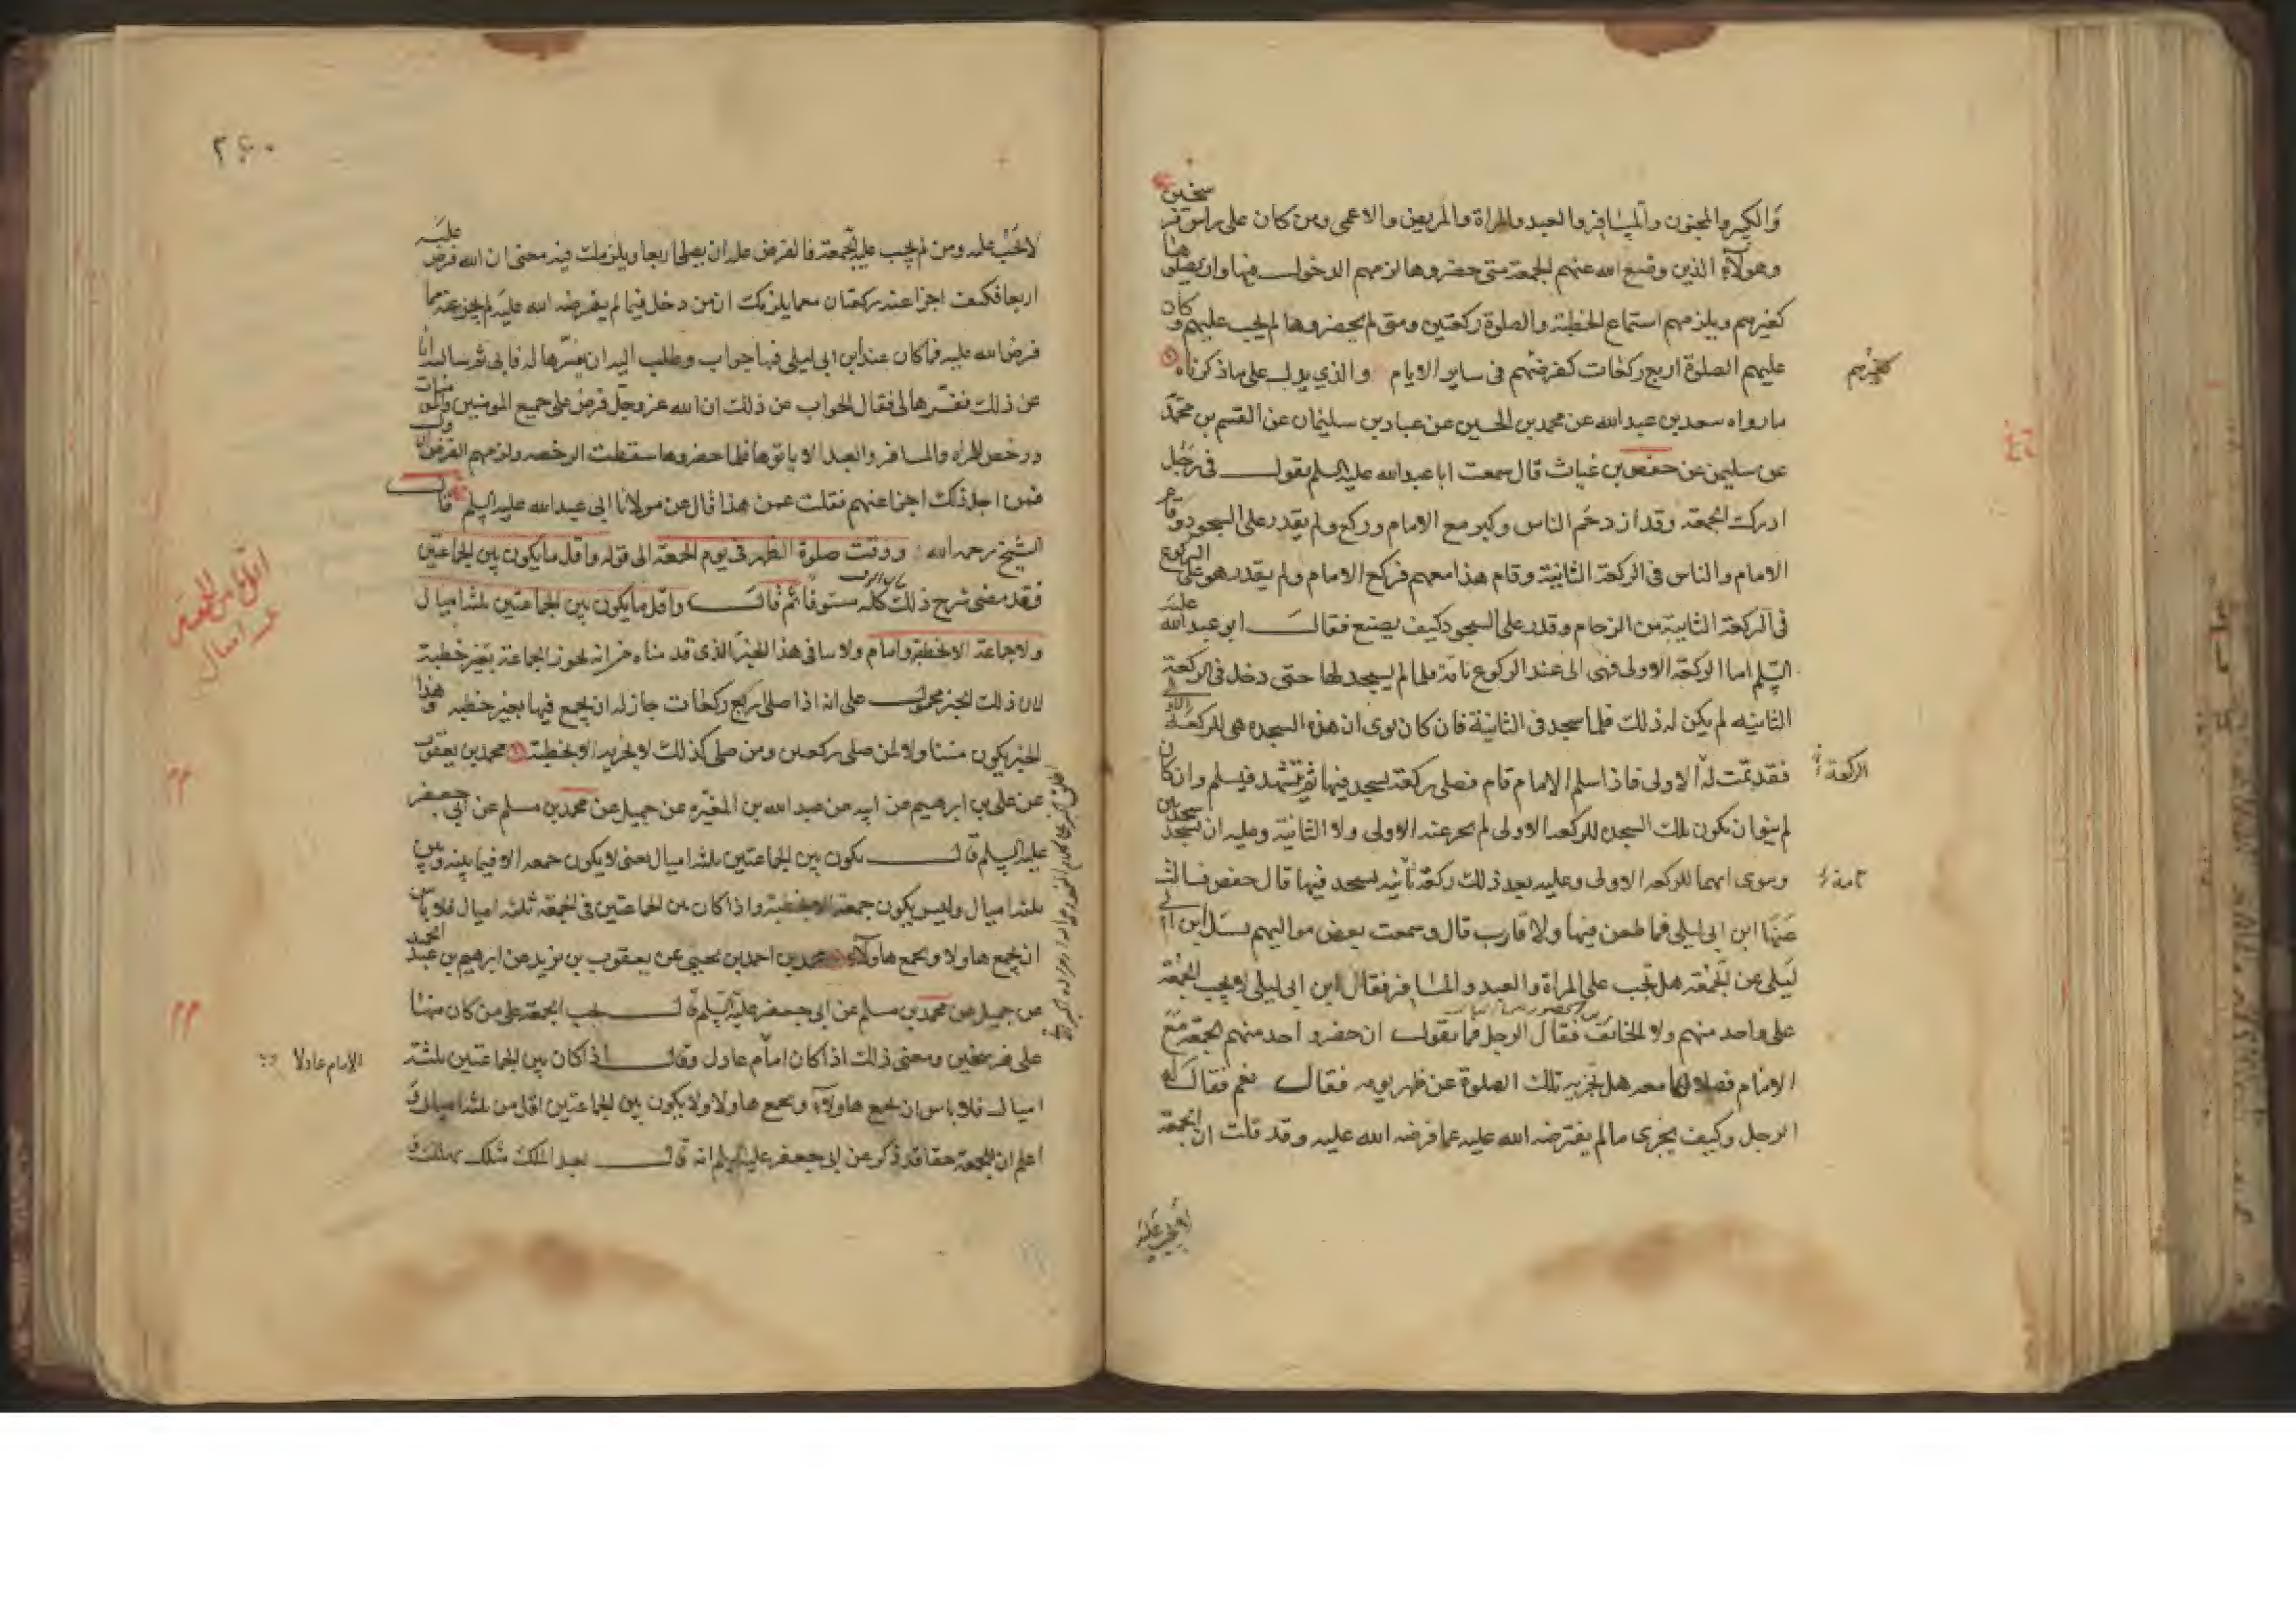 والكبير والمجنون والمسافر والعبد والمراة والمريض والاعمى ومن كان على راس فرسخين
وهولآء الذين وضع الله عنهم الجمعة متى حضروها لزمهم الدخول فيها وان يصلوها
كغيرهم ويلزمهم استماع الخطبة والصلوة ركعتين ومتى لم يحضروها لم يجب عليهم وكان
عليهم الصلوة اربع ركعات كفرضهم في ساير الايام والذي يدل على ما ذكرناه
ما رواه سعد بن عبد الله عن محمد بن الحسين عن عباد بن سليمان عن القسم بن محمد
عن سليمن عن حفص بن غياث قال سمعت ابا عبد الله عليه السلم يقول في رجل
ادرك الجمعة وقد ازدحم الناس وكبر مع الامام وركع ولم يقدر على السجود وقام
الامام والناس في الركعة الثانية وقام هذا معهم فركع الامام ولم يقدر هو على الركوع
في الركعة الثانية من الزحام وقدر على السجود كيف يصنع فقال ابو عبد الله عليه
السلم اما الركعة الاولى فهى الى عند الركوع تامة فلما لم يسجد لها حتى دخل في الركعة
الثانيه لم يكن له ذلك فلما سجد في الثانية فان كان نوى ان هذه السجده هى للركعة
فقد تمت له الاولى فاذا سلم الامام قام فصلى ركعة يسجد فيها ثم تشهد فيسلم وان كان
لم ينو ان تكون تلك السجده للركعه الاولى لم يجز عنه الاولى ولا الثانية وعليه ان يسجد سجدتين
وينوى انهما للركعه الاولى وعليه بعد ذلك ركعة ثانيه يسجد فيها قال حفص فسالت
عنها ابن ابى ليلى فما طعن فيها ولا قارب قال وسمعت بعض مواليهم يسئل ابن ابى
ليلى عن الجمعة هل تجب على المراة والعبد والمسافر فقال ابن ابى ليلى لا تجب الجمعة
على واحد منهم ولا الخائف فقال الرجل فما تقول ان حضر واحد منهم الجمعة مع
الامام فصلاها معه هل تجزيه تلك الصلوة عن ظهر يومه فقال نعم فقال له
الرجل وكيف يجزى ما لم يفترضه الله عليه عما فرضه الله عليه وقد قلت ان الجمعة
كغيرهم
الركعة
تامة
٢٤٠
لا تجب عليه ومن لم يجب عليه الجمعة فالفرض عليه ان يصلى اربعا ويلزمك فيه معنى ان الله فرض عليه
اربعا فكيف اجزا عنه ركعتان مع ما يلزمك ان من دخل فيما لم يفرضه الله عليه لم يجز عنه مما
فرض الله عليه فما كان عند ابن ابى ليلى فيها جواب وطلب اليه ان يفسرها له فابى ثم سالته انا
عن ذلك ففسرها لى فقال الجواب عن ذلك ان الله عز وجل فرض على جميع المومنين والمومنات
ورخص للمراه والمسافر والعبد الا ياتوها فلما حضروها سقطت الرخصه ولزمهم الفرض الاول
فمن اجل ذلك اجزا عنهم فقلت عمن هذا قال عن مولانا ابى عبد الله عليه السلم قال
الشيخ رحمه الله ووقت صلوة الظهر في يوم الجمعة الى قوله واقل ما يكون بين الجماعتين
فقد مضى شرح ذلك كله مستوفا ثم قال واقل ما يكون بين الجماعتين ثلثه اميال
ولا جماعة الا بخطبة وامام ولا ينافى هذا الخبر الذى قدمناه من انه يجوز الجماعة بغير خطبة
لان ذلك الخبر محمول على انه اذا صلى اربع ركعات جاز له ان يجمع فيها بغير خطبه وهذا
الخبر يكون متناولا لمن صلى ركعتين ومن صلى كذلك لا يجزيه الا بخطبة محمد بن يعقوب
عن على بن ابرهيم عن ابيه عن عبد الله بن المغيره عن جميل عن محمد بن مسلم عن ابى جعفر
عليه السلم قال يكون بين الجماعتين ثلثه اميال يعنى لا يكون جمعه الا فيما بينه وبين
ثلثه اميال وليس يكون جمعة الا بخطبة واذا كان بين الجماعتين في الجمعة ثلثه اميال فلا باس
ان يجمع هاولا ويجمع هاولآء محمد بن احمد بن يحيى عن يعقوب بن يزيد عن ابرهيم بن عبد الحميد
عن جميل عن محمد بن مسلم عن ابى جعفر عليه السلم قال تجب الجمعة على من كان منها
على فرسخين ومعنى ذلك اذا كان امام عادل وقال اذا كان بين الجماعتين ثلثة
اميال فلا باس ان يجمع هاولاء ويجمع هاولا ولا يكون بين الجماعتين اقل من ثلثه اميال
اعلم ان للجمعة حقا قد ذكر عن ابى جعفر عليه السلم انه قال
الامام عادلا